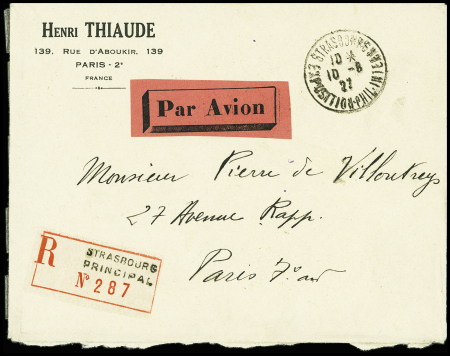 HENRI THIAUDE
139, RUE D'ABOUKIR, 139
PARIS - 2e
FRANCE
STRASBOURG
10 *
10 - 6
27
EXPOSITION PHIL. INTER
Par Avion
Monsieur Pierre de Villoutreys
27 Avenue Rapp.
Paris 7e ar
R
STRASBOURG
PRINCIPAL
No 287